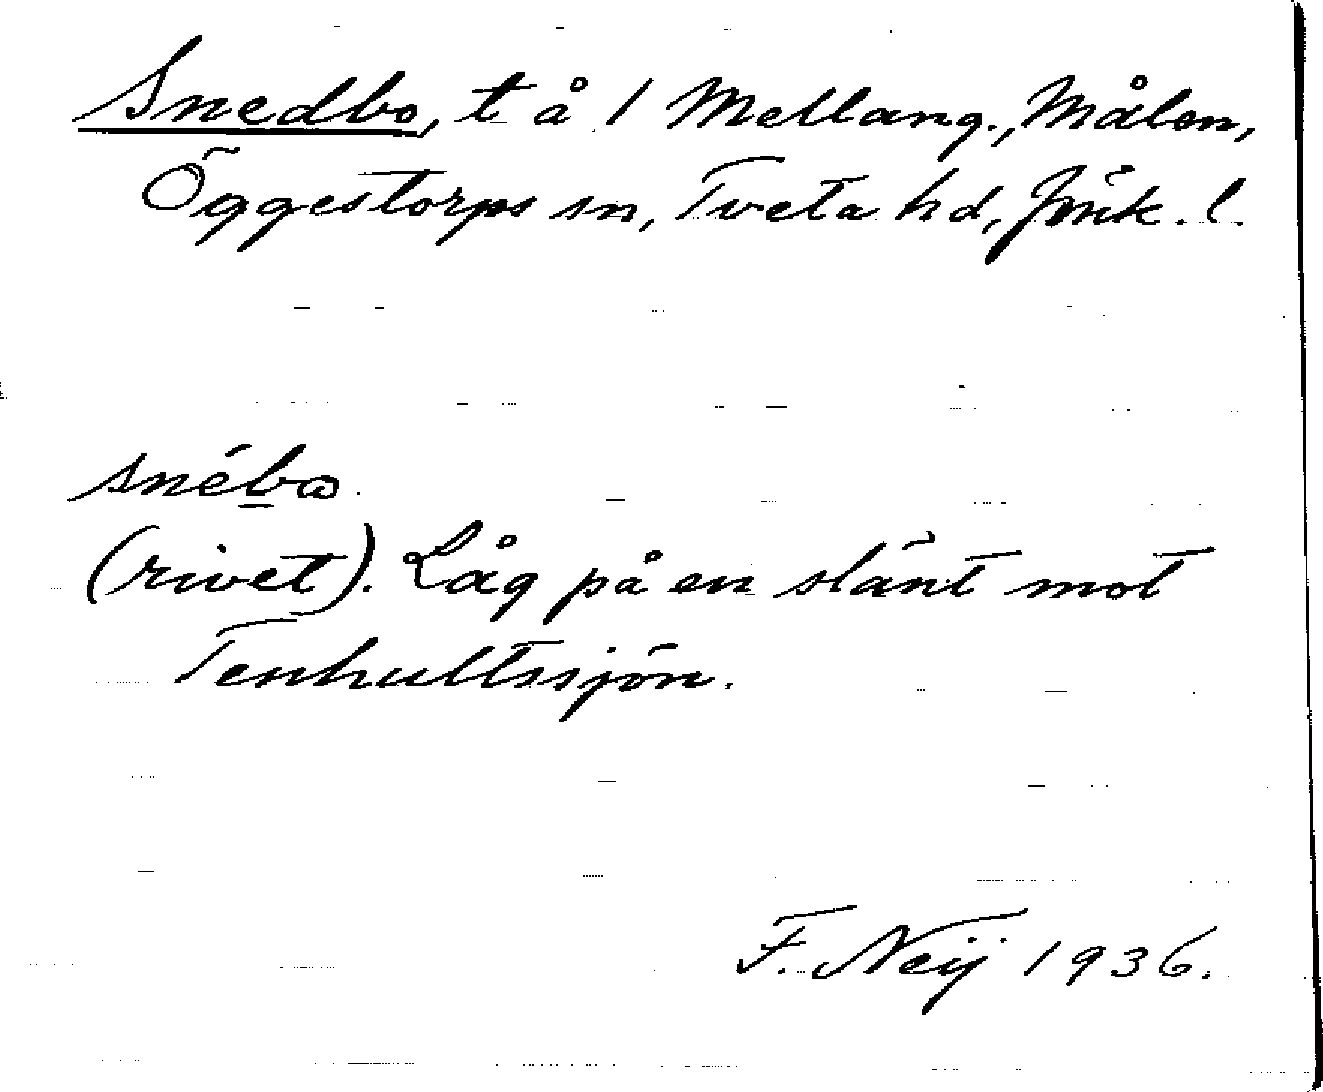 Snedbo, t å 1 Mellang., Målen,
Öggestorps sn, Tveta hd, Jönk. l.
snéba.
(rivet). Låg på en slänt mot
Tenhultssjön.
F. Neij 1936.